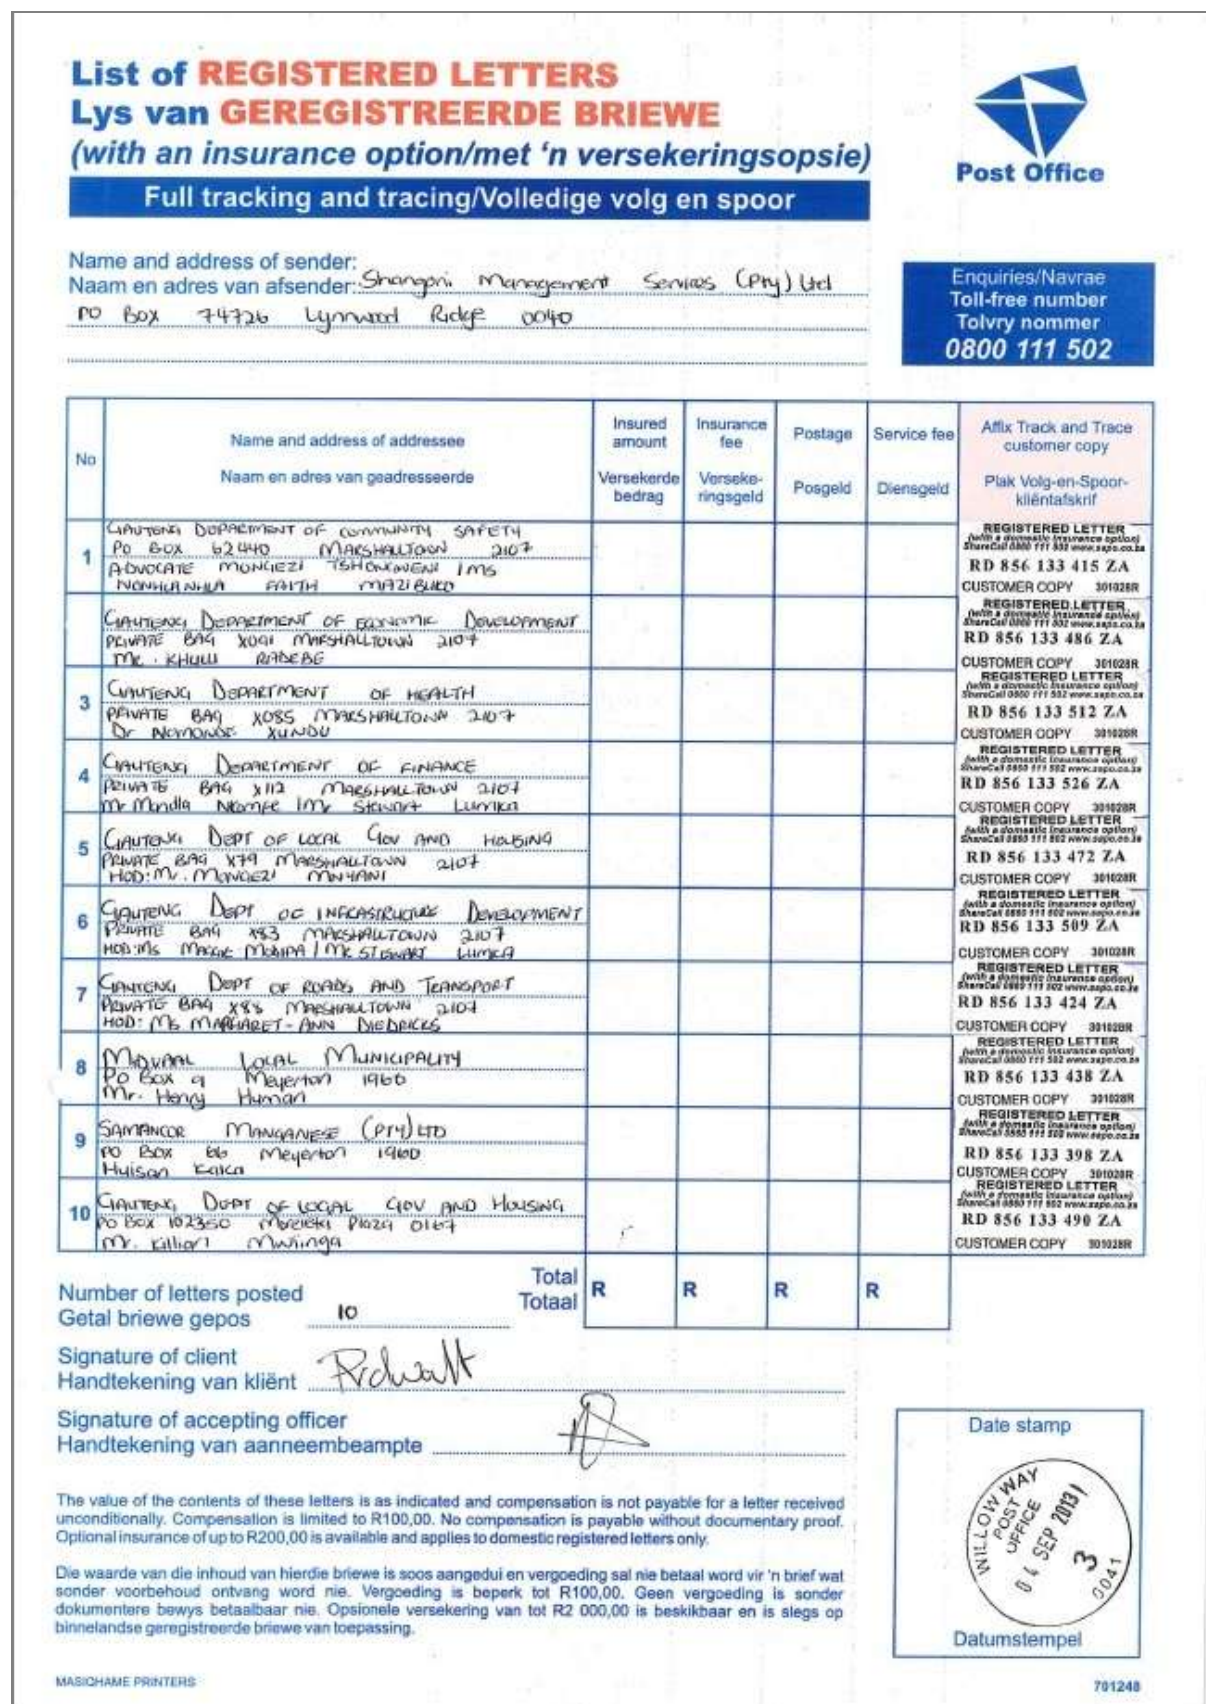 List of REGISTERED LETTERS
Lys van GEREGISTREERDE BRIEWE
(with an insurance option/met 'n versekeringsopsie)
Full tracking and tracing/Volledige volg en spoor
Post Office
Name and address of sender:
Naam en adres van afsender: Shangoni Management Services (Pty) Ltd
PO Box 74726 Lynnwood Ridge 0040
Enquiries/Navrae
Toll-free number
Tolvry nommer
0800 111 502
No
Name and address of addressee
Naam en adres van geadresseerde
Insured amount
Versekerde bedrag
Insurance fee
Verseke-ringsgeld
Postage
Posgeld
Service fee
Diensgeld
Affix Track and Trace customer copy
Plak Volg-en-Spoor-kliëntafskrif
1
GAUTENG DEPARTMENT OF COMMUNITY SAFETY
PO BOX 62440 MARSHALLTOWN 2107
ADVOCATE MONGEZI TSHONGWENI / MS
NONHLANHLA FAITH MAZIBUKO
REGISTERED LETTER
(with a domestic insurance option)
ShareCall 0860 111 502 www.sapo.co.za
RD 856 133 415 ZA
CUSTOMER COPY 301028R
GAUTENG DEPARTMENT OF ECONOMIC DEVELOPMENT
PRIVATE BAG X091 MARSHALLTOWN 2107
MR. KHULU RADEBE
REGISTERED LETTER
(with a domestic insurance option)
ShareCall 0860 111 502 www.sapo.co.za
RD 856 133 486 ZA
CUSTOMER COPY 301028R
3
GAUTENG DEPARTMENT OF HEALTH
PRIVATE BAG X085 MARSHALLTOWN 2107
Dr NOMONDE XUNDU
REGISTERED LETTER
(with a domestic insurance option)
ShareCall 0860 111 502 www.sapo.co.za
RD 856 133 512 ZA
CUSTOMER COPY 301028R
4
GAUTENG DEPARTMENT OF FINANCE
PRIVATE BAG X112 MARSHALLTOWN 2107
Mr Mandla Nkomfe / Mr Stewart Lumka
REGISTERED LETTER
(with a domestic insurance option)
ShareCall 0860 111 502 www.sapo.co.za
RD 856 133 526 ZA
CUSTOMER COPY 301028R
5
GAUTENG DEPT OF LOCAL GOV AND HOUSING
PRIVATE BAG X79 MARSHALLTOWN 2107
HOD: Mr. MONGEZI MNYANI
REGISTERED LETTER
(with a domestic insurance option)
ShareCall 0860 111 502 www.sapo.co.za
RD 856 133 472 ZA
CUSTOMER COPY 301028R
6
GAUTENG DEPT OF INFRASTRUCTURE DEVELOPMENT
PRIVATE BAG X83 MARSHALLTOWN 2107
HOD: MS MAGGIE MOJAPA / MR STEWART LUMKA
REGISTERED LETTER
(with a domestic insurance option)
ShareCall 0860 111 502 www.sapo.co.za
RD 856 133 509 ZA
CUSTOMER COPY 301028R
7
GAUTENG DEPT OF ROADS AND TRANSPORT
PRIVATE BAG X88 MARSHALLTOWN 2107
HOD: MS MARGARET-ANN DIEDRICKS
REGISTERED LETTER
(with a domestic insurance option)
ShareCall 0860 111 502 www.sapo.co.za
RD 856 133 424 ZA
CUSTOMER COPY 301028R
8
MIDVAAL LOCAL MUNICIPALITY
PO Box 9 Meyerton 1960
Mr. Henry Human
REGISTERED LETTER
(with a domestic insurance option)
ShareCall 0860 111 502 www.sapo.co.za
RD 856 133 438 ZA
CUSTOMER COPY 301028R
9
SAMANCOR MANGANESE (PTY) LTD
PO Box 66 Meyerton 1960
Huisan
REGISTERED LETTER
(with a domestic insurance option)
ShareCall 0860 111 502 www.sapo.co.za
RD 856 133 398 ZA
CUSTOMER COPY 301028R
10
GAUTENG DEPT OF LOCAL GOV AND HOUSING
PO Box 102350 Moreleta Plaza 0167
Mr. Killian Mwiinga
REGISTERED LETTER
(with a domestic insurance option)
ShareCall 0860 111 502 www.sapo.co.za
RD 856 133 490 ZA
CUSTOMER COPY 301028R
Number of letters posted
Getal briewe gepos 10
Total
Totaal
R R R R
Signature of client
Handtekening van kliënt
Signature of accepting officer
Handtekening van aanneembeampte
The value of the contents of these letters is as indicated and compensation is not payable for a letter received
unconditionally. Compensation is limited to R100,00. No compensation is payable without documentary proof.
Optional insurance of up to R200,00 is available and applies to domestic registered letters only.
Die waarde van die inhoud van hierdie briewe is soos aangedui en vergoeding sal nie betaal word vir 'n brief wat
sonder voorbehoud ontvang word nie. Vergoeding is beperk tot R100,00. Geen vergoeding is sonder
dokumentere bewys betaalbaar nie. Opsionele versekering van tot R2 000,00 is beskikbaar en is slegs op
binnelandse geregistreerde briewe van toepassing.
Date stamp
WILLOW WAY
POST
OFFICE
04 SEP 2013
3
0041
Datumstempel
MASIQHAME PRINTERS
701248